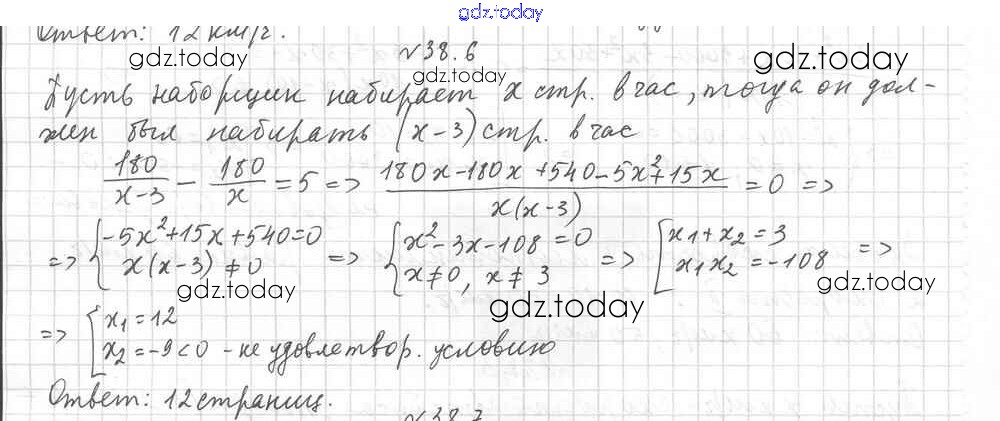 gdz.today
Ответ: 12 км/г.
№38.6
gdz.today
gdz.today
Пусть наборщик набирает x стр. в час, тогда он дол-
жен был набирать (x-3) стр. в час
gdz.today
gdz.today
180/(x-3) - 180/x = 5 => (180x-180x+540-5x²+15x)/(x(x-3)) = 0 =>
=> { -5x²+15x+540=0 ; x(x-3)≠0 => { x²-3x-108=0 ; x≠0, x≠3 => [ x₁+x₂=3 ; x₁x₂=-108 =>
gdz.today
gdz.today
gdz.today
=> [ x₁=12
x₂=-9<0 - не удовлетвор. условию
Ответ: 12 страниц.
№38.7